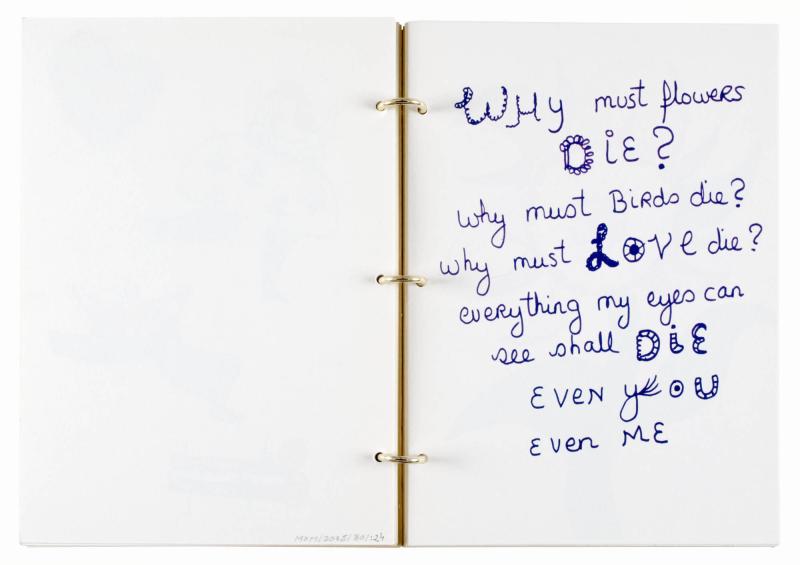 WHy must flowers
DiE?
why must BiRds die?
why must LOVE die?
everything my eyes can
see shall DiE
EVEN yOU
Even ME